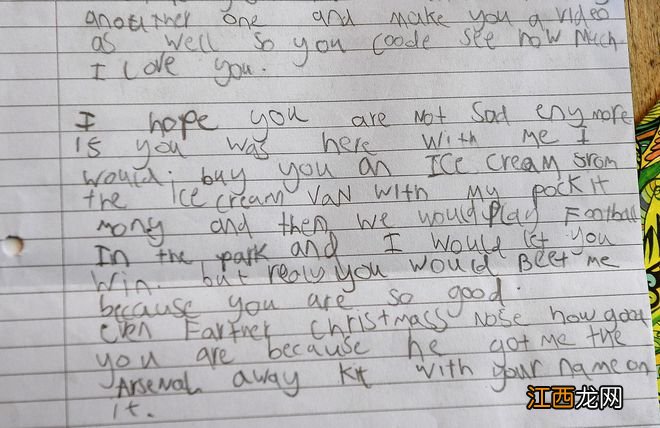 another one and make you a video
as well so you coode see how much
I Love you.
I hope you are not sad eny more
is you was here with me I
would buy you an ICe cream srom
the Ice cream van with my pockit
mony and then we would play Football
In the park and I would let you
win. but realy you would Beet me
because you are so good.
even Farther christmass nose how good
you are because he got me the
Arsenal away kit with your name on
it.
江西龙网